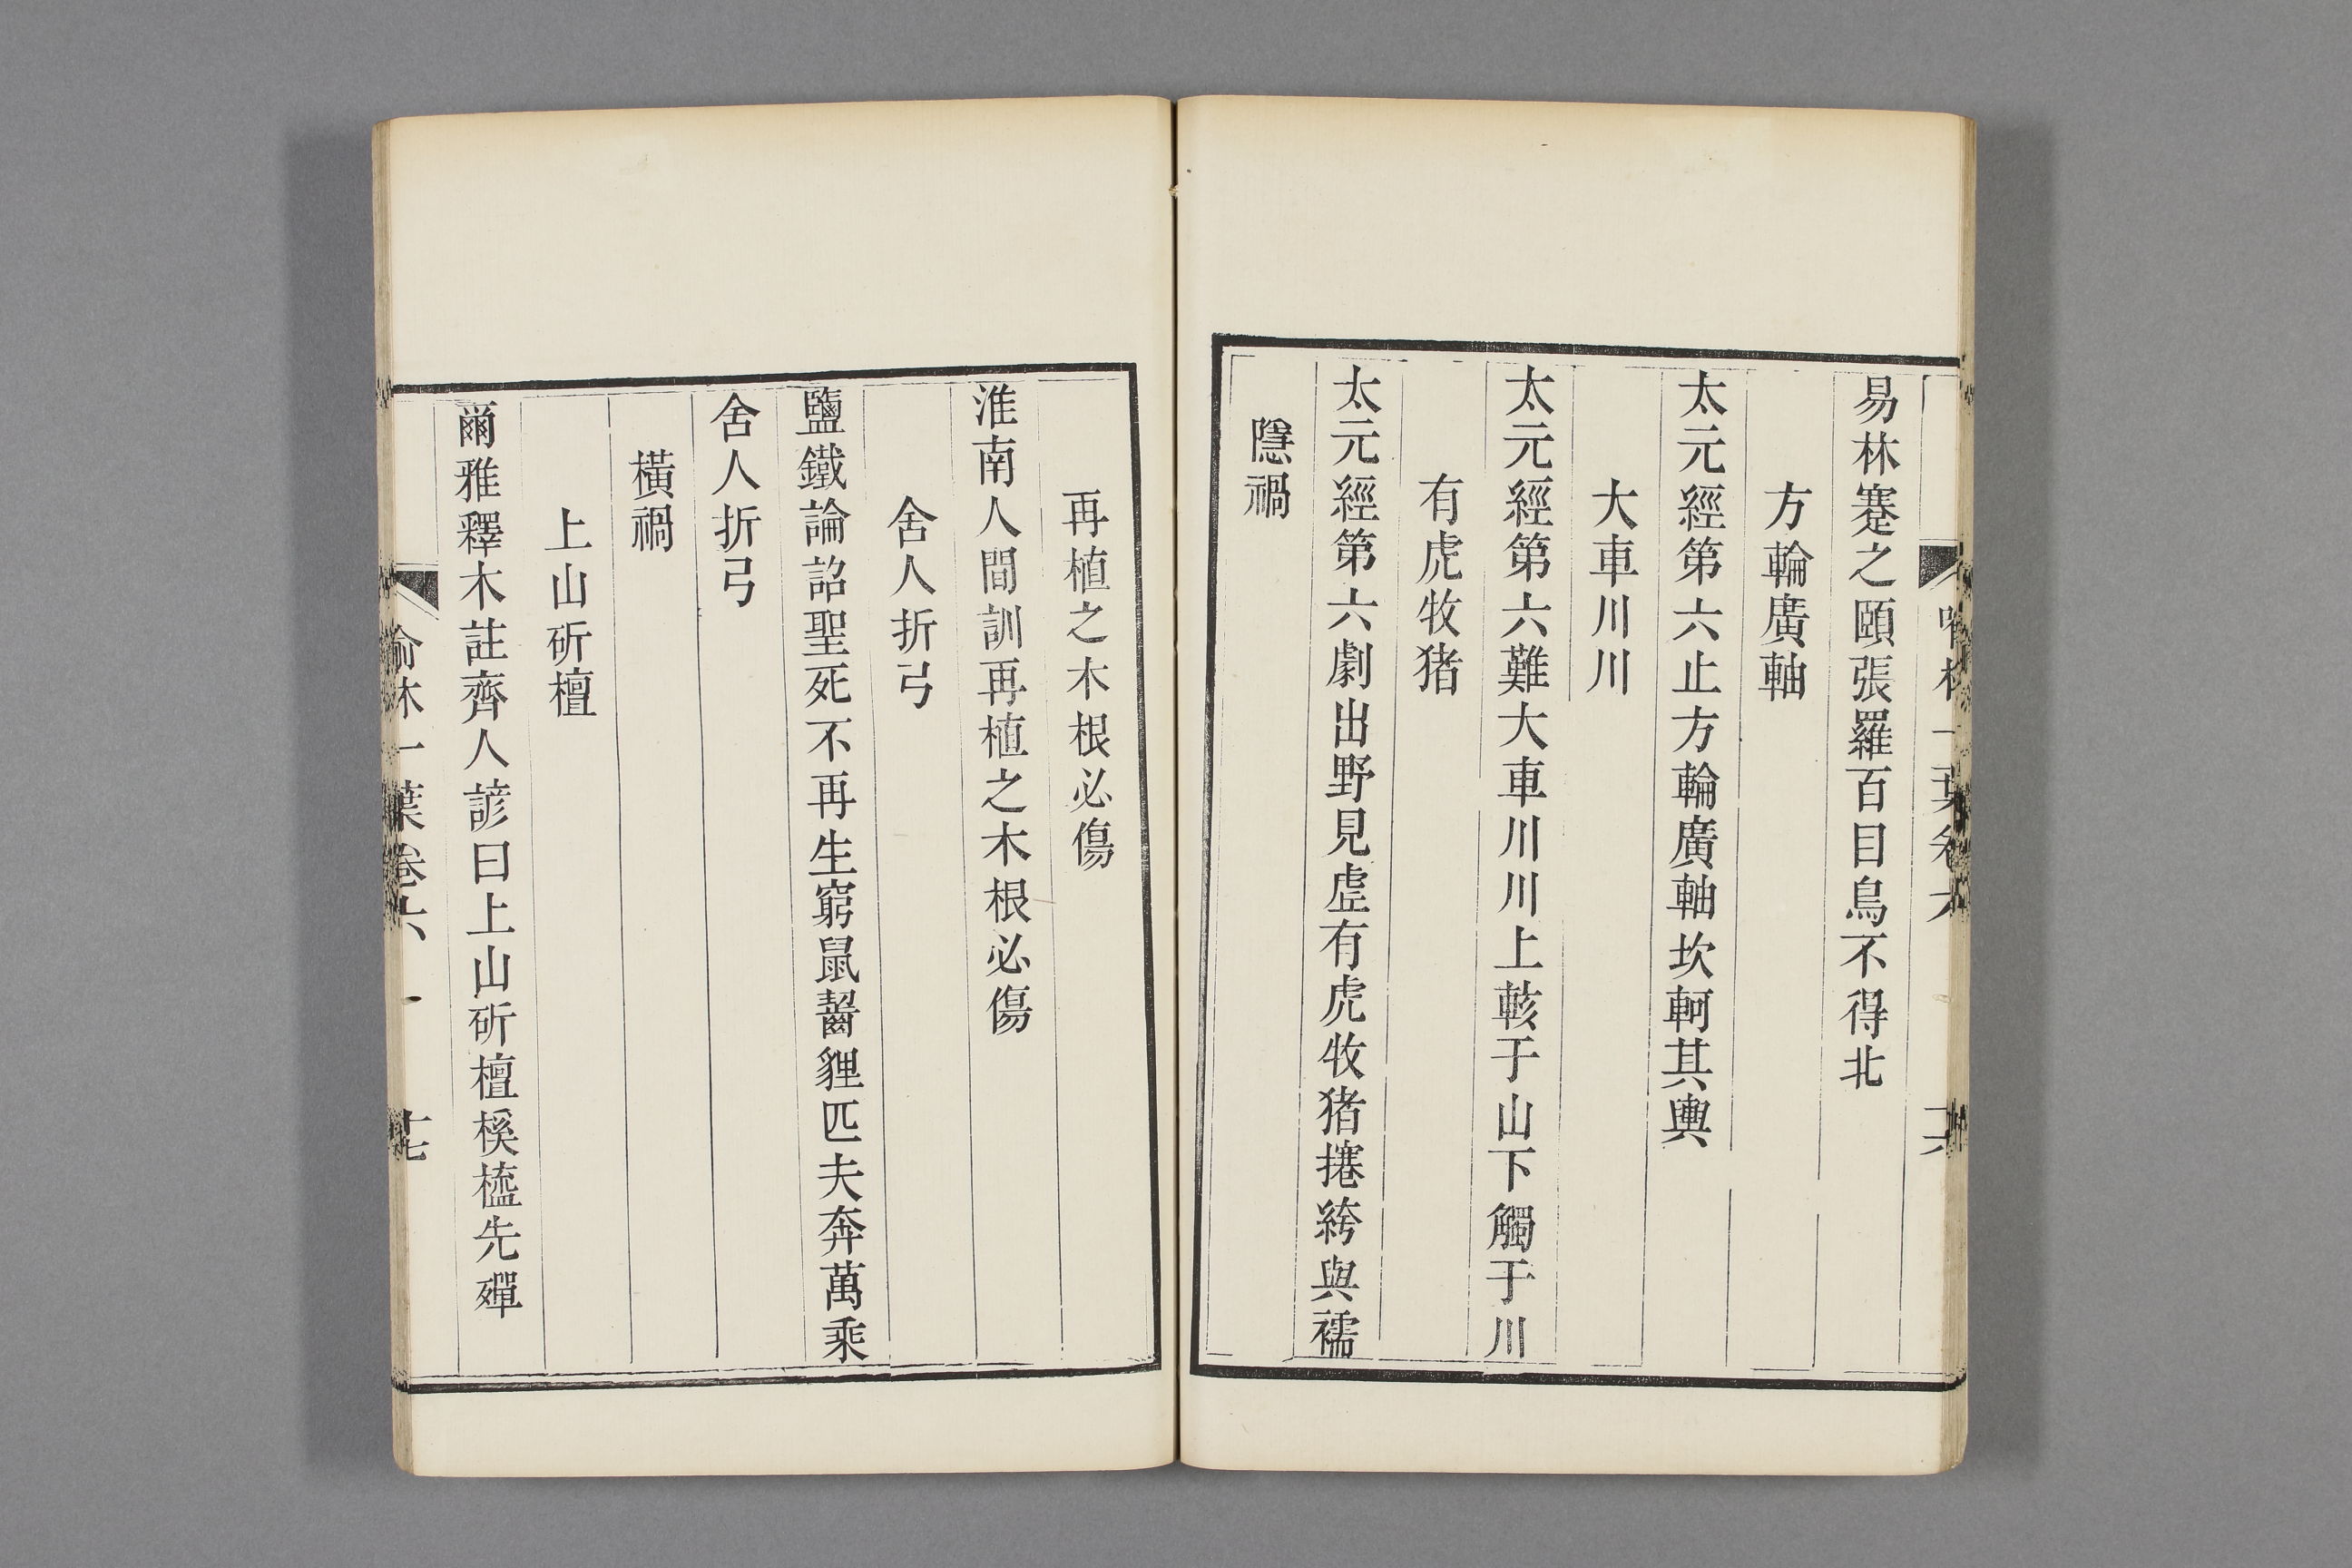 易林蹇之頤張羅百目鳥不得北
方輪廣軸
太元經第六止方輪廣軸坎軻其輿
大車川川
太元經第六難大車川川上輆于山下觸于川
有虎牧猪
太元經第六劇出野見虛有虎牧猪攐絝與襦
隱禍
再植之木根必傷
淮南人間訓再植之木根必傷
舍人折弓
鹽鐵論詔聖死不再生窮鼠齧貍匹夫奔萬乘
舍人折弓
橫禍
上山斫檀
爾雅釋木註齊人諺曰上山斫檀榽橀先殫
喻林一葉卷六
十七